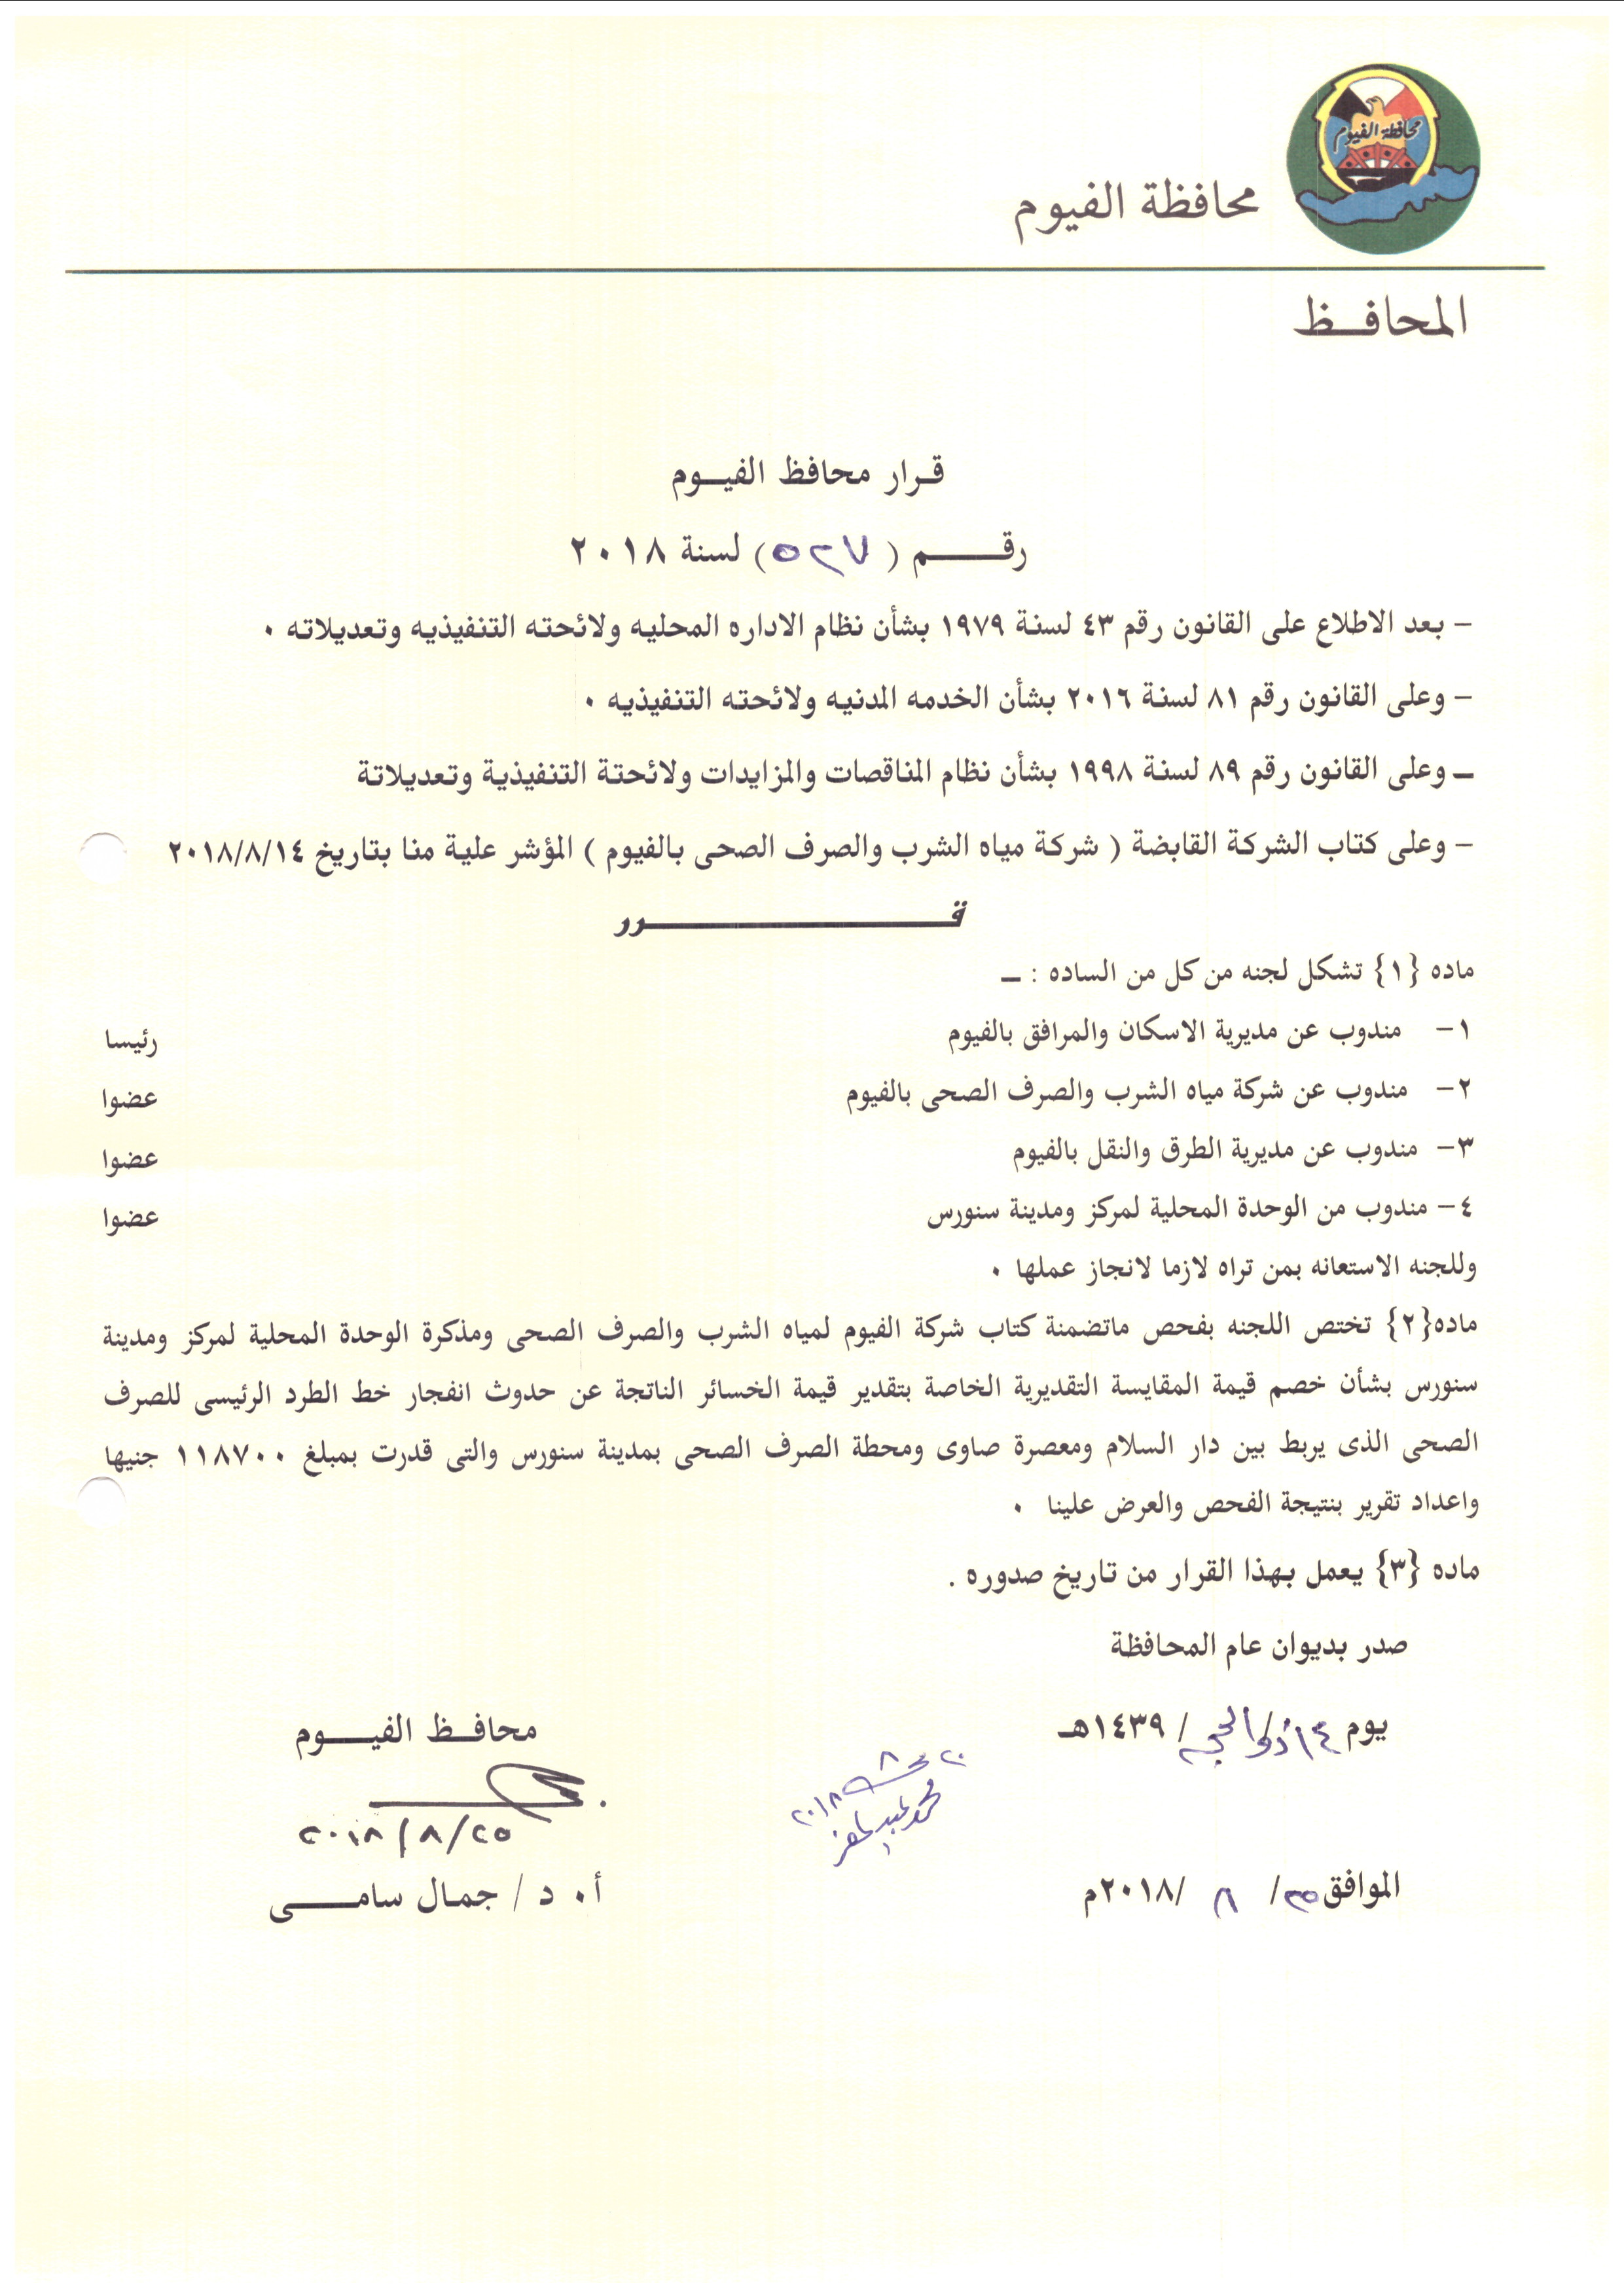 محافظة الفيوم
محافظة الفيوم
المحافـــظ
قـرار محافظ الفيـــوم
رقـــــــم ( ٥٢٧ ) لسنة ٢٠١٨
– بعد الاطلاع على القانون رقم ٤٣ لسنة ١٩٧٩ بشأن نظام الاداره المحليه ولائحته التنفيذيه وتعديلاته ٠
– وعلى القانون رقم ٨١ لسنة ٢٠١٦ بشأن الخدمه المدنيه ولائحته التنفيذيه ٠
ـ وعلى القانون رقم ٨٩ لسنة ١٩٩٨ بشأن نظام المناقصات والمزايدات ولائحتة التنفيذية وتعديلاتة
– وعلى كتاب الشركة القابضة ( شركة مياه الشرب والصرف الصحى بالفيوم ) المؤشر علية منا بتاريخ ٢٠١٨/٨/١٤
قـــــــــــــــــــــرر
ماده {١} تشكل لجنه من كل من الساده : ـ
١– مندوب عن مديرية الاسكان والمرافق بالفيوم رئيسا
٢– مندوب عن شركة مياه الشرب والصرف الصحى بالفيوم عضوا
٣– مندوب عن مديرية الطرق والنقل بالفيوم عضوا
٤– مندوب من الوحدة المحلية لمركز ومدينة سنورس عضوا
وللجنه الاستعانه بمن تراه لازما لانجاز عملها ٠
ماده{٢} تختص اللجنه بفحص ماتضمنة كتاب شركة الفيوم لمياه الشرب والصرف الصحى ومذكرة الوحدة المحلية لمركز ومدينة
سنورس بشأن خصم قيمة المقايسة التقديرية الخاصة بتقدير قيمة الخسائر الناتجة عن حدوث انفجار خط الطرد الرئيسى للصرف
الصحى الذى يربط بين دار السلام ومعصرة صاوى ومحطة الصرف الصحى بمدينة سنورس والتى قدرت بمبلغ ١١٨٧٠٠ جنيها
واعداد تقرير بنتيجة الفحص والعرض علينا ٠
ماده {٣} يعمل بهذا القرار من تاريخ صدوره .
صدر بديوان عام المحافظة
يوم ١٤/ذو الحجة/ ١٤٣٩هـ
محافــظ الفيـــــوم
٢٠١٨/٨/٢٥
٢٠١٨
الموافق ٢٥/ ٨ /٢٠١٨م
أ٠ د / جمـال سامــــى